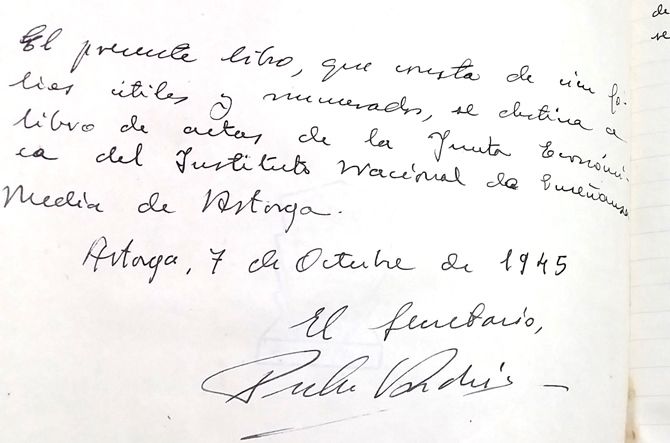 El presente libro, que consta de cien fo-
lios útiles y numerados, se destina a
libro de actas de la Junta Económi-
ca del Instituto Nacional de Enseñanza
Media de Astorga.
Astorga, 7 de Octubre de 1945
El Secretario,
de
se